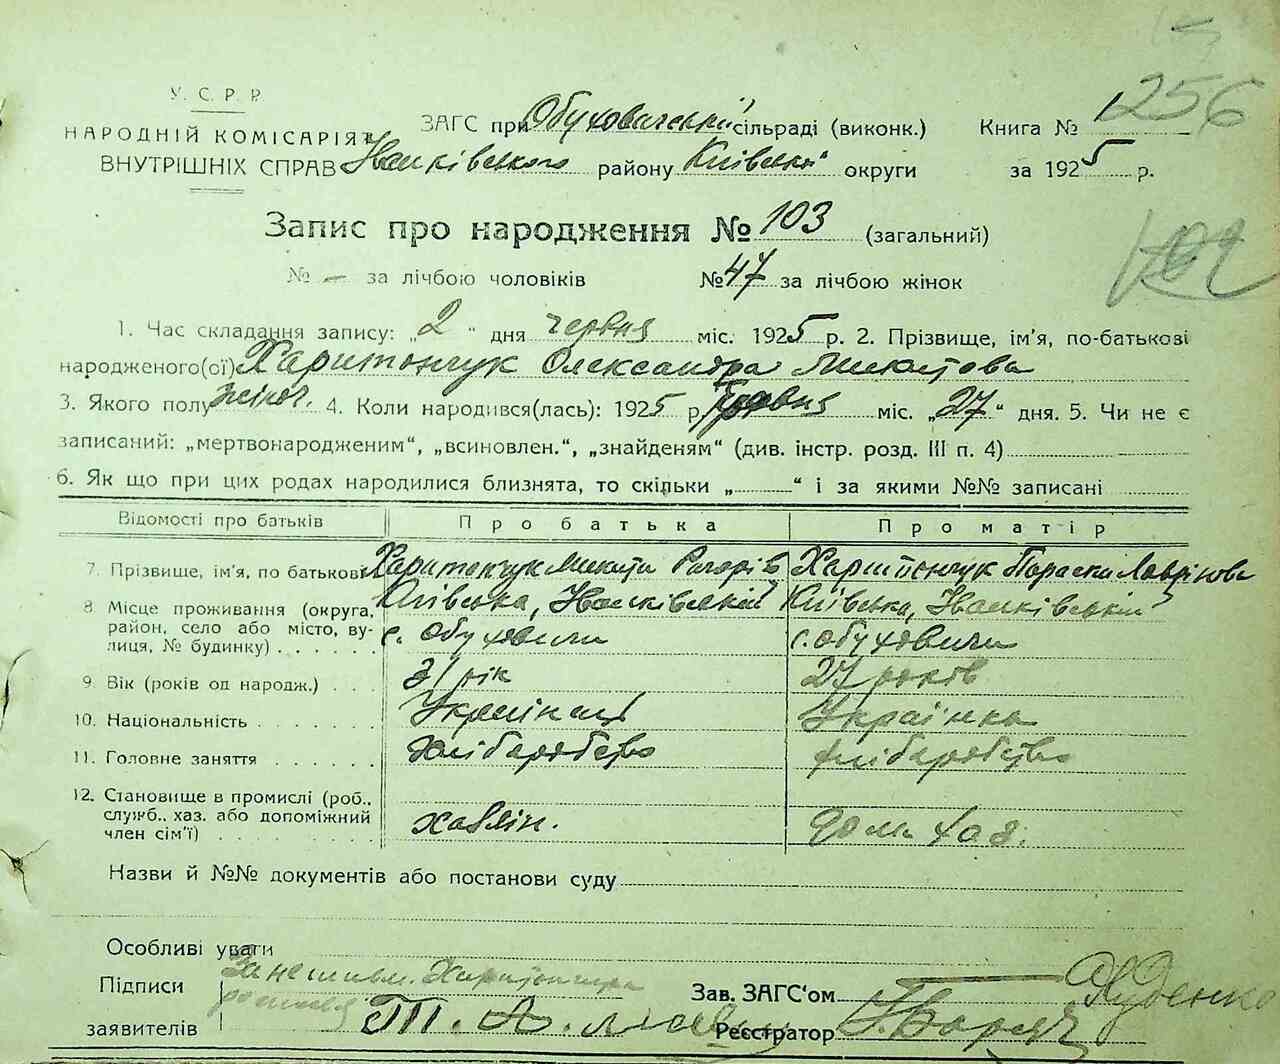 256
У. С. Р. Р.
НАРОДНІЙ КОМІСАРІЯТ
ВНУТРІШНІХ СПРАВ
ЗАГС при Обуховичській сільраді (виконк.) Книга № 1
Іванківського району Київської округи за 1925 р.
Запис про народження № 103 (загальний)
№ — за лічбою чоловіків № 47 за лічбою жінок
1. Час складання запису: „2“ дня червня міс. 1925 р. 2. Прізвище, ім'я, по-батькові
народженого(ої) Харитончук Олександра Микитова
3. Якого полу жіноч. 4. Коли народився(лась): 1925 р. міс. „27“ дня. 5. Чи не є
записаний: „мертвонародженим“, „всиновлен.“, „знайденям“ (див. інстр. розд. III п. 4)
6. Як що при цих родах народилися близнята, то скільки „ “ і за якими №№ записані
Відомості про батьків Про батька Про матір
7. Прізвище, ім'я, по батькові Харитончук Микита Харитончук Параска Лаврінова
8 Місце проживання (округа, Київська, Іванківський Київська, Іванківській
район, село або місто, ву- с. Обуховичи с. Обуховичи
лиця, № будинку)
9. Вік (років од народж.) 31 рік 27 років
10. Національність Українец Українка
11. Головне заняття хліборобство хліборобство
12. Становище в промислі (роб.,
служб., хаз. або допоміжний хазяін. дом. хоз.
член сім'ї)
Назви й №№ документів або постанови суду
Особливі уваги
Підписи
заявителів
Зав. ЗАГС'ом
Реєстратор